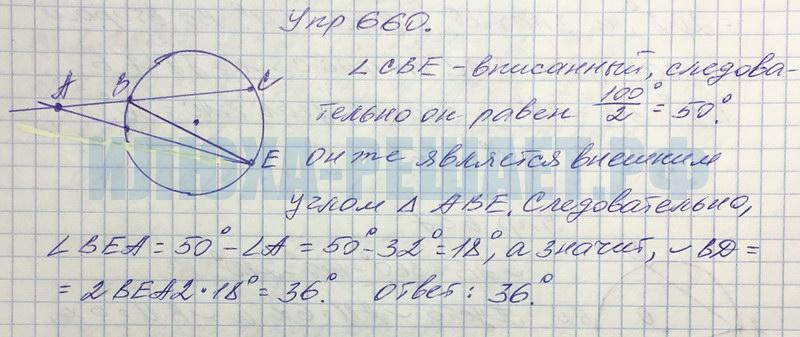 Упр 660.
A B C E
∠CBE - вписанный, следова-
тельно он равен 100°/2 = 50°.
он же является внешним
углом Δ ABE. Следовательно,
∠BEA = 50° - ∠A = 50° - 32° = 18°, а значит, ◡BD =
= 2BEA2·18° = 36°. ответ: 36°.
ИЛЮХА-РЕШАЕТ.РФ